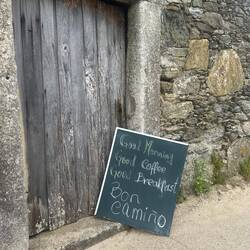 Good Morning
Good Coffee
Good Breakfast
Bon
camino